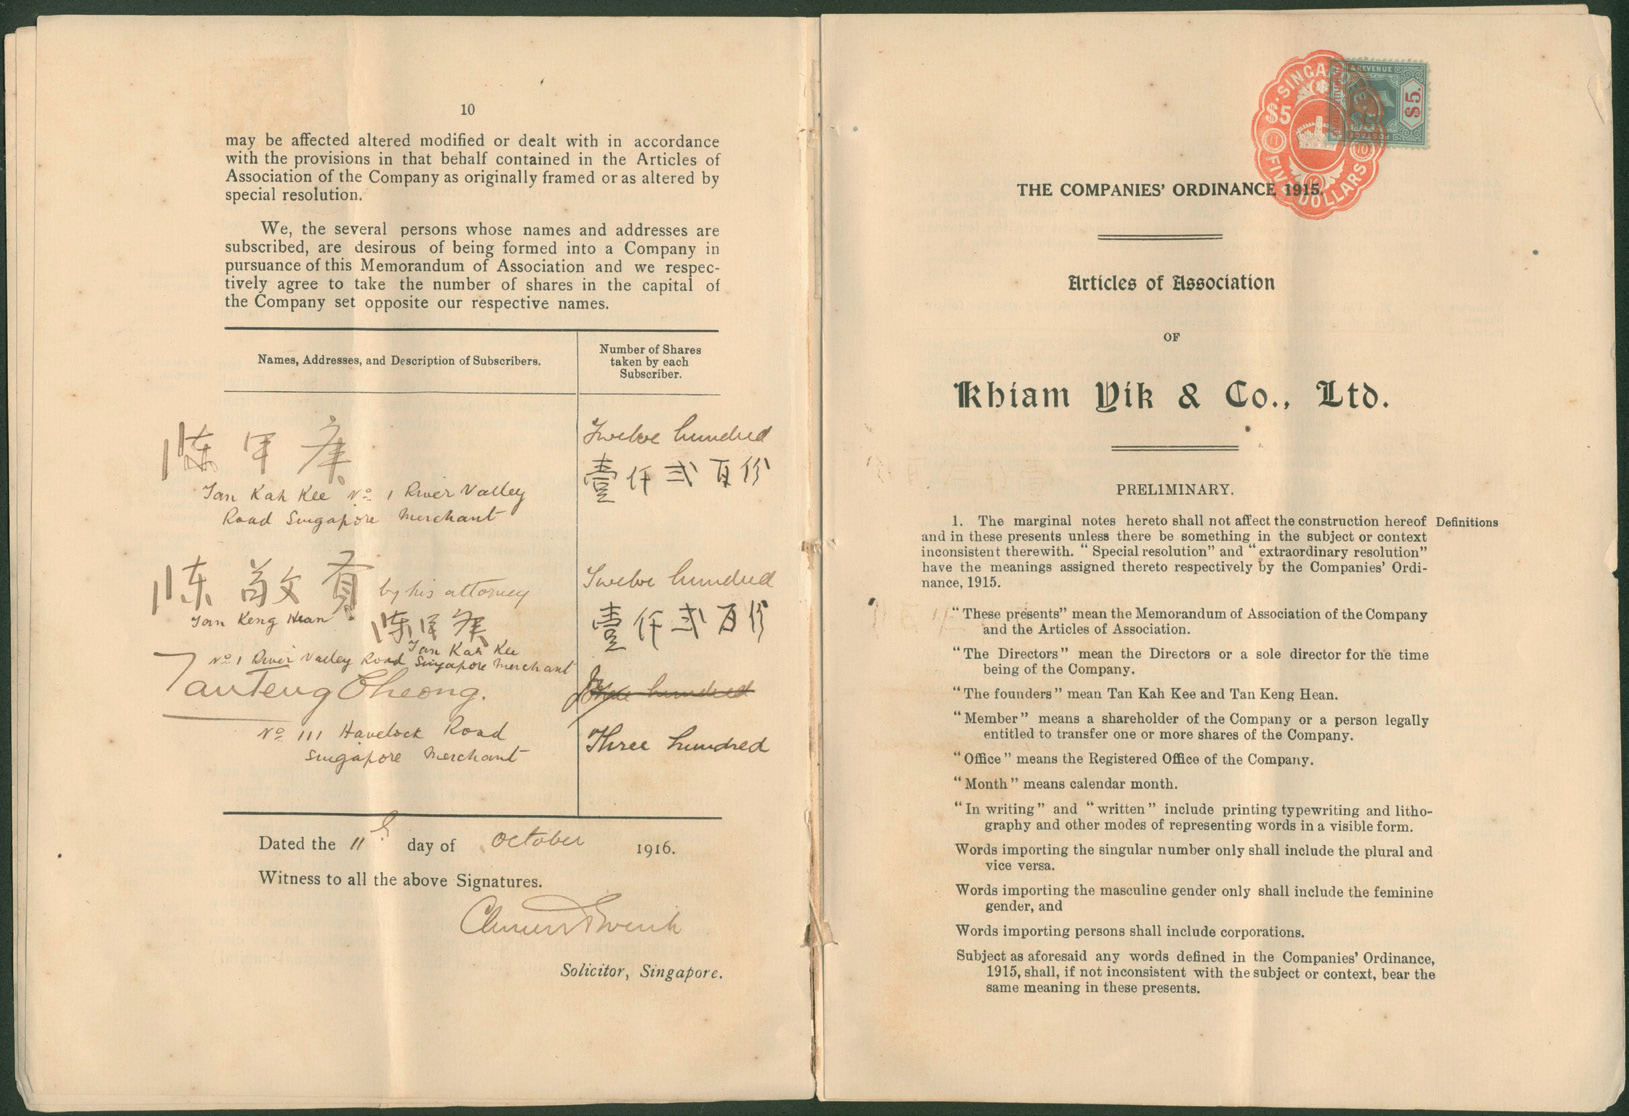 10
may be affected altered modified or dealt with in accordance
with the provisions in that behalf contained in the Articles of
Association of the Company as originally framed or as altered by
special resolution.
We, the several persons whose names and addresses are
subscribed, are desirous of being formed into a Company in
pursuance of this Memorandum of Association and we respec-
tively agree to take the number of shares in the capital of
the Company set opposite our respective names.
Names, Addresses, and Description of Subscribers.
Number of Shares
taken by each
Subscriber.
陳甲庚
Tan Kah Kee No 1 River Valley
Road Singapore Merchant
Twelve hundred
壹仟弍百份
陳敬賢 by his attorney
Tan Keng Hean
陳甲庚
Tan Kah Kee
No 1 River Valley Road Singapore Merchant
Twelve hundred
壹仟弍百份
Tan Teng Cheong.
No 111 Havelock Road
Singapore Merchant
hundred
Three hundred
Dated the 11th day of October 1916.
Witness to all the above Signatures.
Solicitor, Singapore.
SINGAPORE
$5
FIVE DOLLARS
REVENUE
$5.
THE COMPANIES' ORDINANCE 1915.
Articles of Association
OF
Khiam Yik & Co., Ltd.
PRELIMINARY.
1. The marginal notes hereto shall not affect the construction hereof
Definitions
and in these presents unless there be something in the subject or context
inconsistent therewith. "Special resolution" and "extraordinary resolution"
have the meanings assigned thereto respectively by the Companies' Ordi-
nance, 1915.
"These presents" mean the Memorandum of Association of the Company
and the Articles of Association.
"The Directors" mean the Directors or a sole director for the time
being of the Company.
"The founders" mean Tan Kah Kee and Tan Keng Hean.
"Member" means a shareholder of the Company or a person legally
entitled to transfer one or more shares of the Company.
"Office" means the Registered Office of the Company.
"Month" means calendar month.
"In writing" and "written" include printing typewriting and litho-
graphy and other modes of representing words in a visible form.
Words importing the singular number only shall include the plural and
vice versa.
Words importing the masculine gender only shall include the feminine
gender, and
Words importing persons shall include corporations.
Subject as aforesaid any words defined in the Companies' Ordinance,
1915, shall, if not inconsistent with the subject or context, bear the
same meaning in these presents.